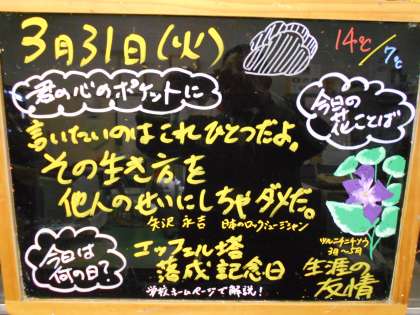 3月31日(火)
14℃/7℃
君の心のポケットに
今日の花ことば
言いたいのはこれひとつだよ。
その生き方を
他人のせいにしちゃダメだ。
矢沢 永吉 日本のロックミュージシャン
ツルニチニチソウ
3月〜5月
生涯の
友情
今日は
何の日?
エッフェル塔
落成記念日
学校ホームページで解説!